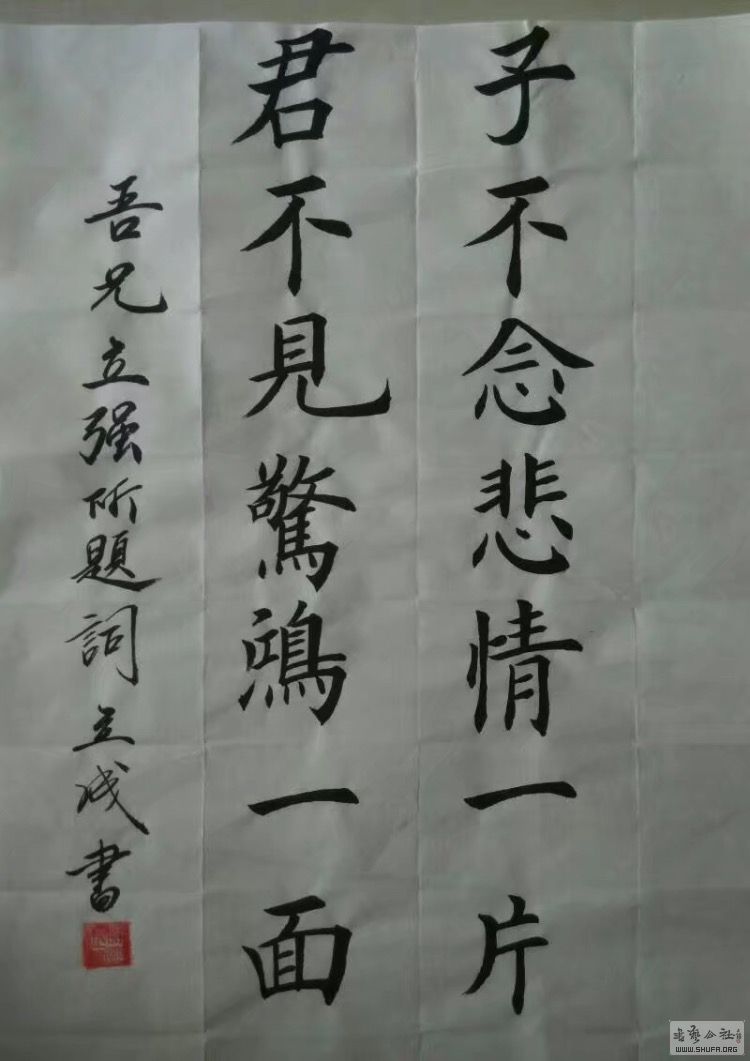 子不念悲情一片
君不見驚鴻一面
吾兄立强所題詞立成書
WWW.SHUFA.ORG